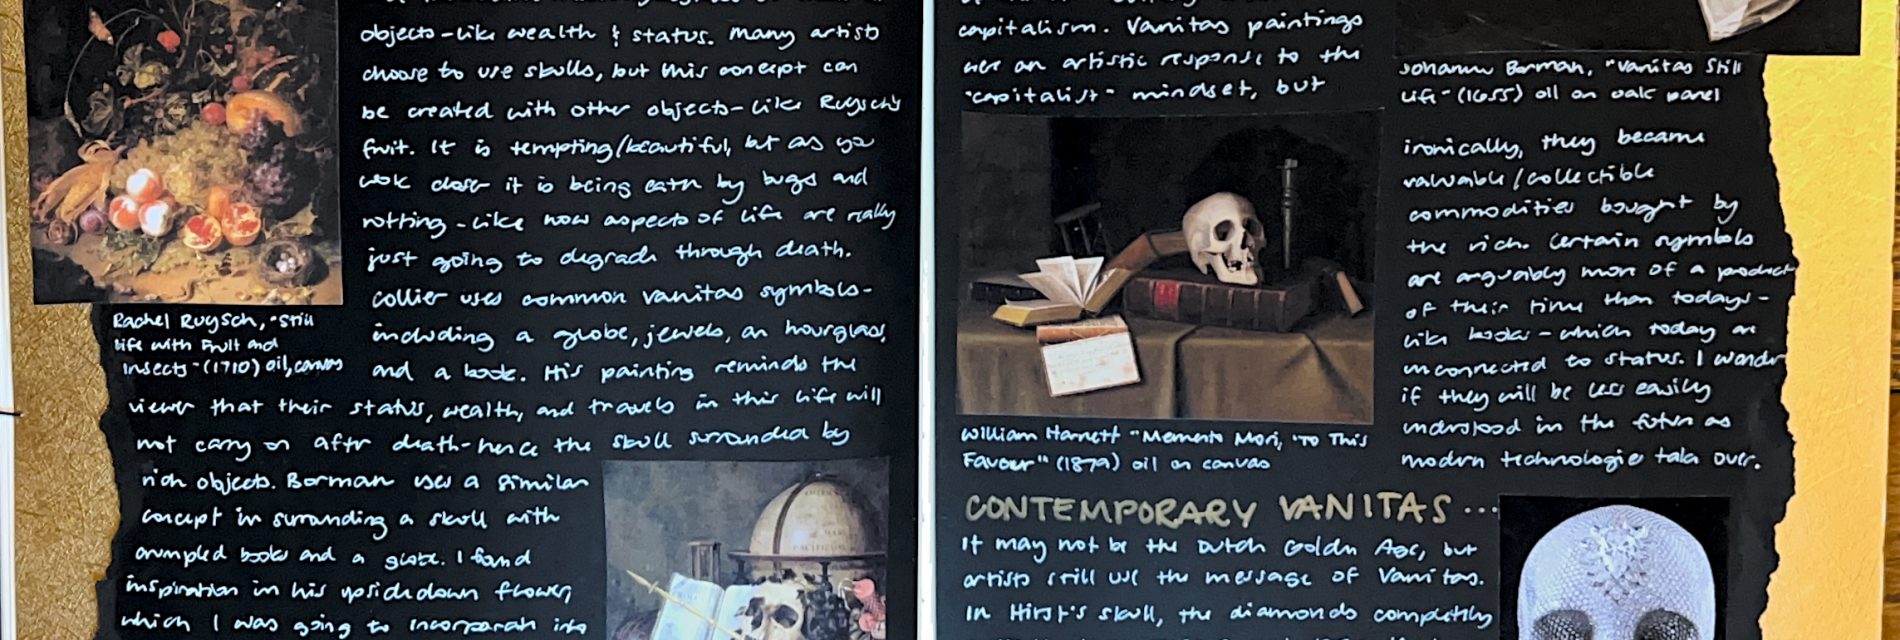 objects-like wealth & status. Many artists
choose to use skulls, but this concept can
be created with other objects-like Ruysch's
fruit. It is tempting/beautiful, but as you
look closer it is being eatn by bugs and
rotting-like how aspects of life are really
just going to degrade through death.
Collier uses common vanitas symbols-
including a globe, jewels, an hourglass,
and a book. His painting reminds the
viewer that their status, wealth, and travels in this life will
not carry on aftr death-hence the skull surrounded by
rich objects. Borman uses a similar
concept in surrounding a skull with
crumpled books and a globe. I found
inspiration in his upsidedown flower,
which I was going to incorporate into
Rachel Ruysch, "Still
life with Fruit and
Insects" (1710) oil, canvas
capitalism. Vanitas paintings
were an artistic response to the
"capitalist" mindset, but
William Harnett "Memento Mori, "To This
Favour" (1879) oil on canvas
Johannes Borman, "Vanitas Still
Life" (1655) oil on oak panel
ironically, they became
valuable/collectible
commodities bought by
the rich. Certain symbols
are arguably more of a product
of their time than todays-
like books-which today are
unconnected to status. I wonder
if they will be less easily
understood in the future as
modern technologies take over.
CONTEMPORARY VANITAS...
It may not be the Dutch Golden Age, but
artists still use the message of Vanitas.
In Hirst's skull, the diamonds completely